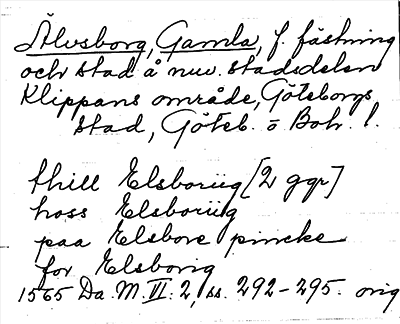 Älvsborg, Gamla, f. fästning
och stad å nuv. stadsdelen
Klippans område, Göteborgs
stad, Göteb. o Boh. l.
thill Elsboriig [2 ggr]
hoss Elsboriig
paa Elsbore pincke
for Elsborig
1565 Da. M. III: 2, ss. 292-295. orig